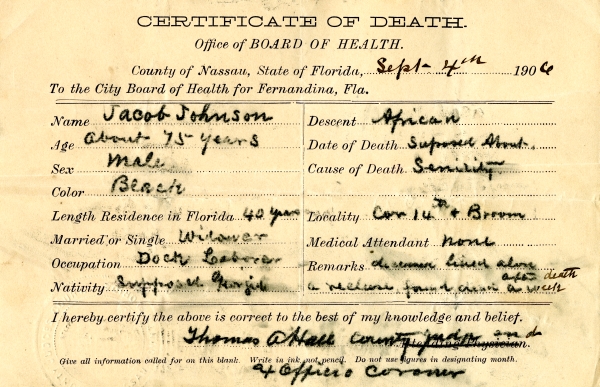 CERTIFICATE OF DEATH.
Office of BOARD OF HEALTH.
County of Nassau, State of Florida, Sept 4th 1906
To the City Board of Health for Fernandina, Fla.
Name Jacob Johnson
Age About 75 years
Sex Male
Color Black
Length Residence in Florida 40 years
Married or Single Widower
Occupation Dock Laborer
Nativity Supposed
Descent African
Date of Death Suposed About
Cause of Death Senility
Locality Cor 14th & Broom
Medical Attendant None
Remarks deceased lived alone
a recluse found dead a week after death
I hereby certify the above is correct to the best of my knowledge and belief.
Thomas A Hall County Judge and
Attending Physician.
Give all information called for on this blank. Write in ink, not pencil. Do not use figures in designating month.
Officio Coroner